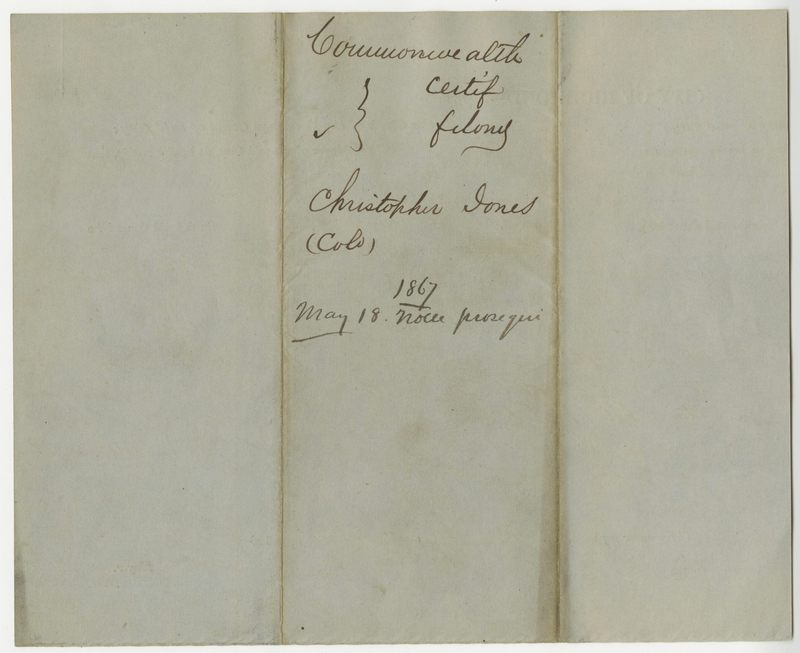 Commonwealth
} certif
v } felony
Christopher Jones
(Cold)
1867
May 18. Nolle prosequi